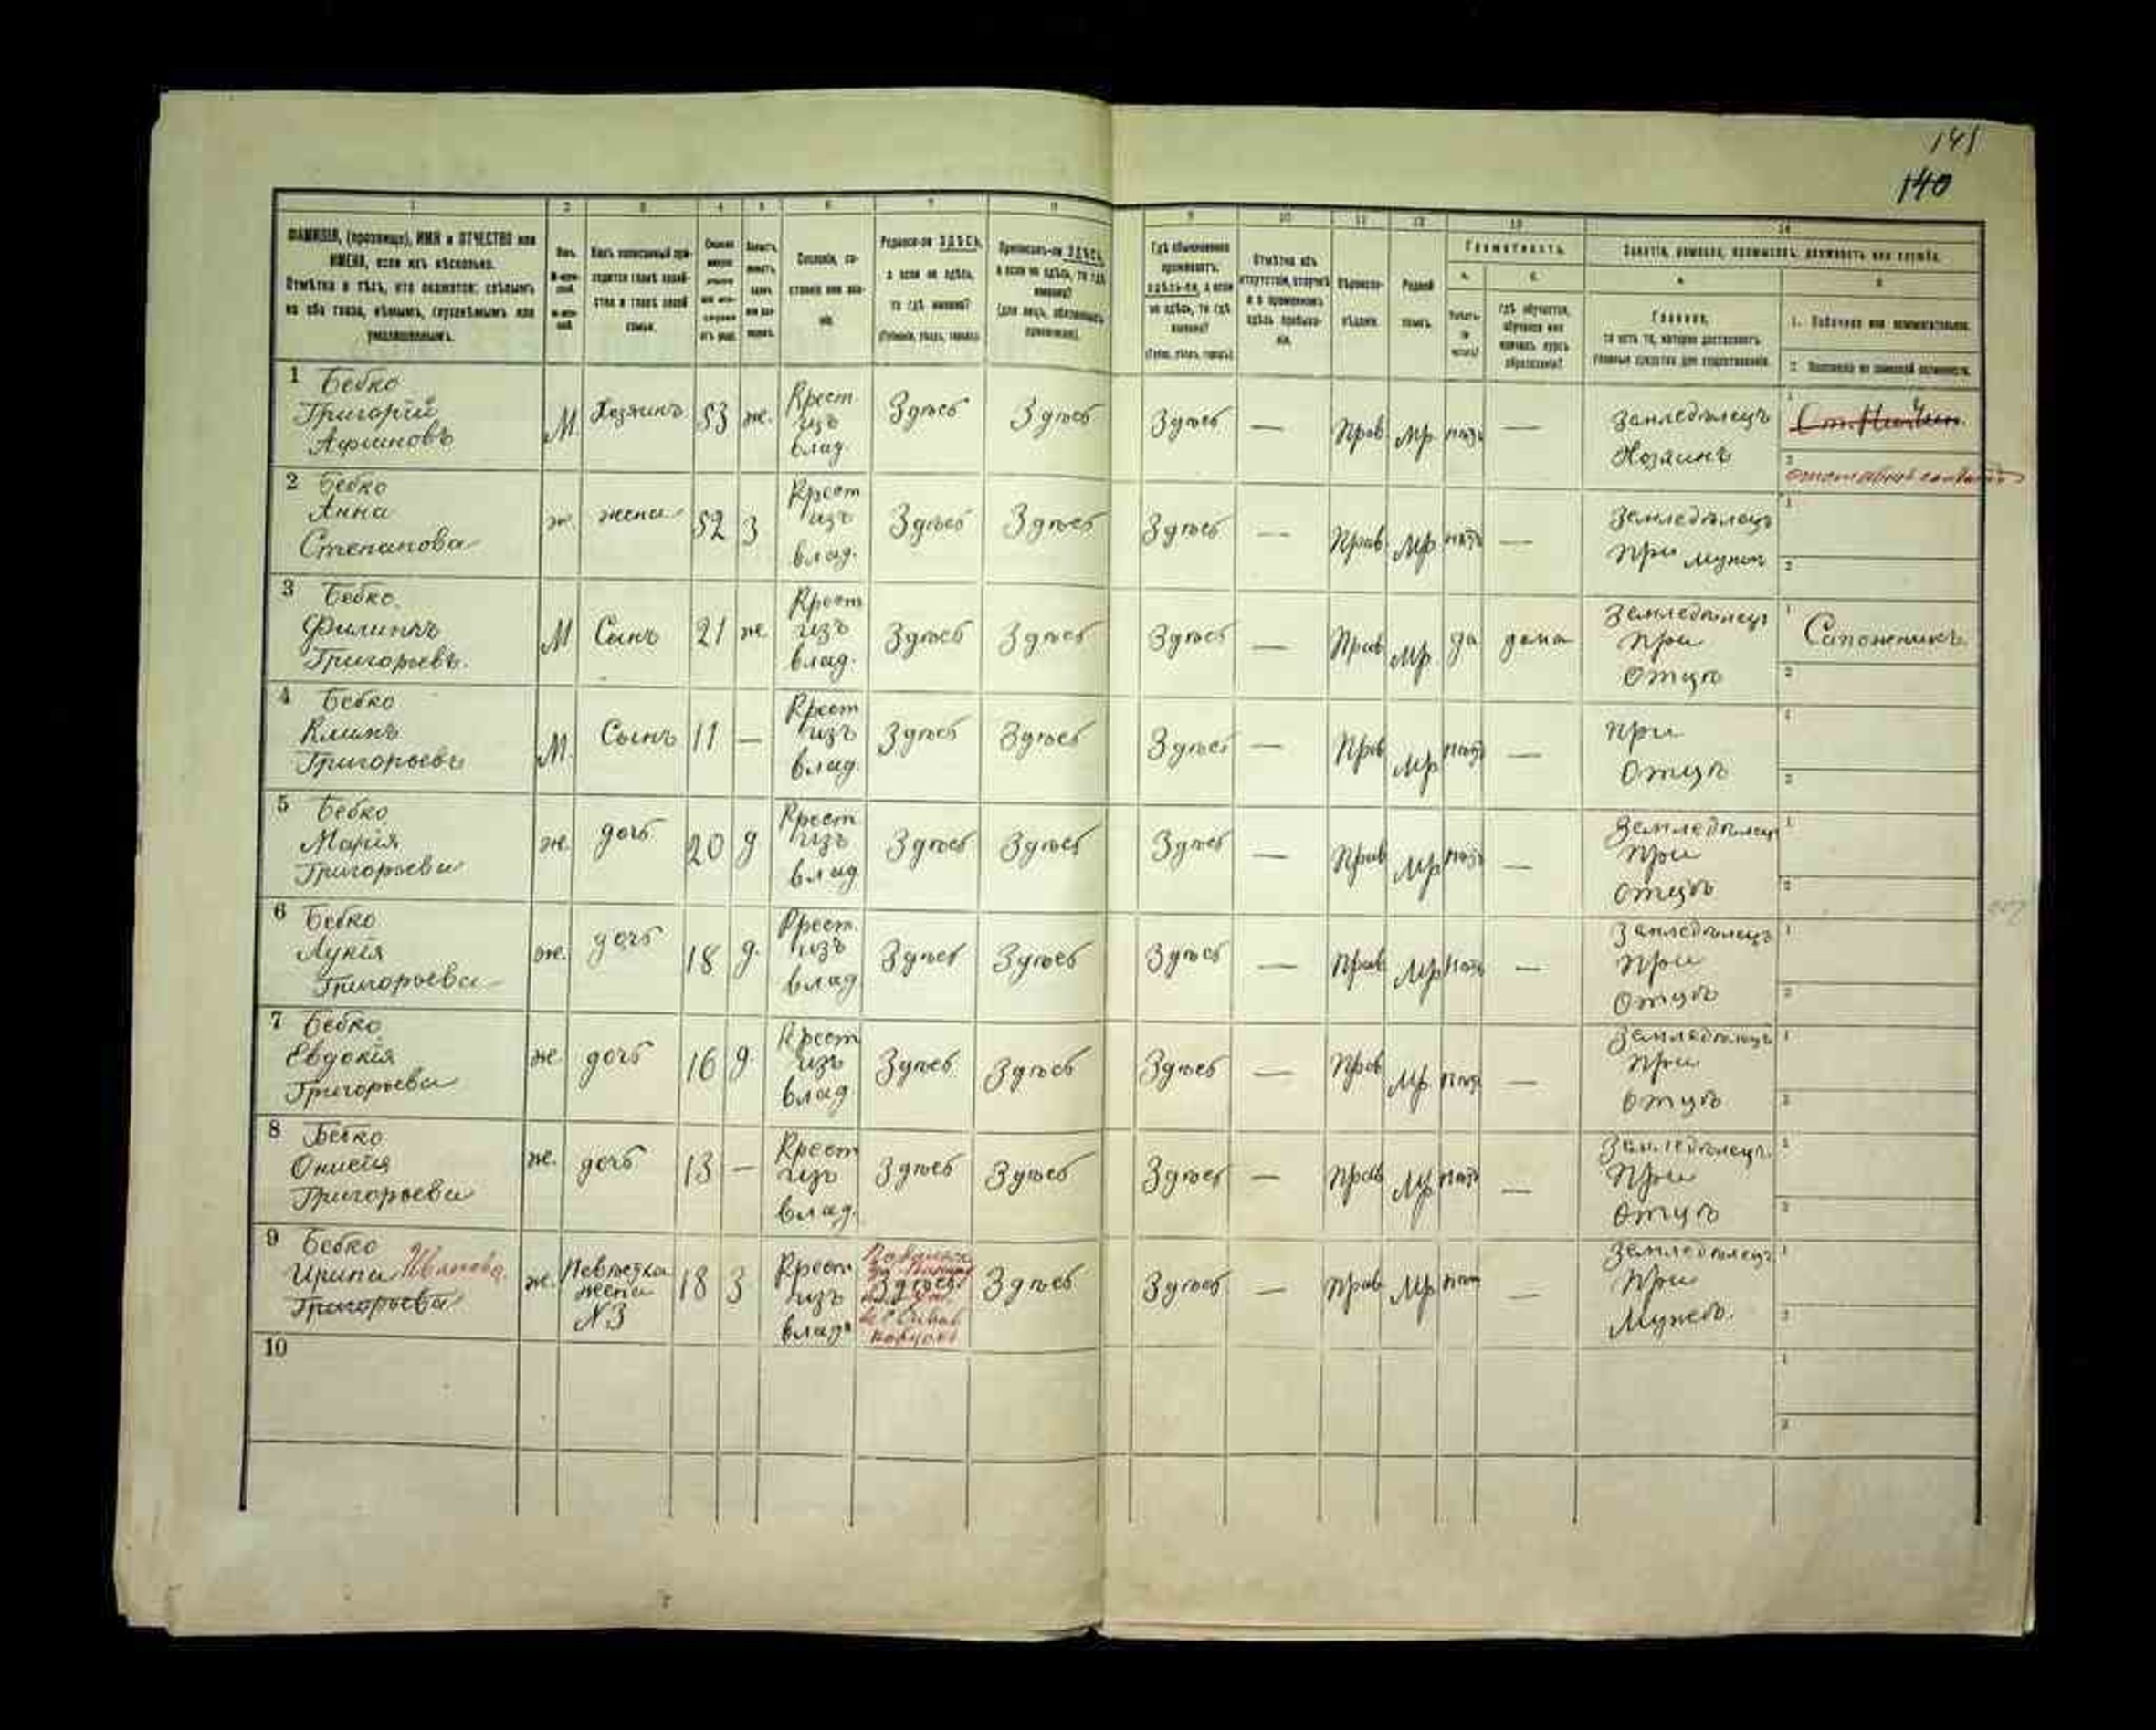 141
140
1 2 3 4 5 6 7 8 9 10 11 12 13 14
ФАМИЛІЯ, (прозвище), ИМЯ и ОТЧЕСТВО или
ИМЕНА, если ихъ нѣсколько.
Отмѣтка о тѣхъ, кто окажется: слѣпымъ
на оба глаза, нѣмымъ, глухонѣмымъ или
умалишеннымъ.
Полъ.
Какъ записанный при-
ходится главѣ хозяй-
ства и главѣ своей
семьи.
Сословіе, со-
стояніе или зва-
ніе.
Родился-ли ЗДѢСЬ,
а если не здѣсь,
то гдѣ именно?
(Губернія, уѣздъ, городъ)
Приписанъ-ли ЗДѢСЬ,
а если не здѣсь, то гдѣ
именно?
(для лицъ, обязанныхъ
припискою).
Гдѣ обыкновенно
проживаетъ:
здѣсь-ли, а если
не здѣсь, то гдѣ
именно?
(Губ., уѣздъ, городъ)
Отмѣтка объ
отсутствіи, отлучкѣ
и о временномъ
здѣсь пребыва-
ніи.
Вѣроиспо-
вѣданіе.
Родной
языкъ.
Грамотность.
а. б.
Умѣетъ-
ли
читать?
гдѣ обучается,
обучался или
кончилъ курсъ
образованія?
Занятіе, ремесло, промыселъ, должность или служба.
а. б.
Главное,
то есть то, которое доставляетъ
главныя средства для существованія.
1. Побочное или вспомогательное.
2. Положеніе по воинской повинности.
1 Бебко
Григорій
М. Хозяинъ 53 же. Крест изъ влад. Здѣсь Здѣсь Здѣсь — Прав Мр. — Земледѣлецъ
Хозяинъ
1
2 отставной солдатъ
2 Бебко
Анна
Степанова
ж. жена 52 З Крест изъ влад. Здѣсь Здѣсь Здѣсь — Прав Мр — Земледѣлецъ
при мужѣ
1
2
3 Бебко
Филиппъ
Григорьевъ.
М Сынъ 21 же Крест изъ влад. Здѣсь Здѣсь Здѣсь — Прав Мр да дома Земледѣлецъ
при
отцѣ
1 Сапожникъ.
2
4 Бебко
Климъ
Григорьевъ
М. Сынъ 11 — Крест изъ влад. Здѣсь Здѣсь Здѣсь — Прав Мр — при
отцѣ
1
2
5 Бебко
Марія
Григорьева
же. дочь 20 д Крест изъ влад Здѣсь Здѣсь Здѣсь — Прав Мр — Земледѣлец
при
отцѣ
1
2
6 Бебко
Лукія
Григорьева
же. дочь 18 д. Крест. изъ влад Здѣсь Здѣсь Здѣсь — Прав Мр — Земледѣлецъ
при
отцѣ
1
2
7 Бебко
Евдокія
Григорьева
же дочь 16 д. Крест изъ влад. Здѣсь Здѣсь Здѣсь — Прав Мр — Земледѣлецъ
при
отцѣ
1
2
8 Бебко
Григорьева
же. дочь 13 — Крест изъ влад. Здѣсь Здѣсь Здѣсь — Прав Мр — Земледѣлецъ.
при
отцѣ
1
2
9 Бебко
Ирина Иванова
Григорьева
же. Невѣстка
жена
№3
18 З Крест изъ влад Здѣсь Здѣсь Здѣсь — Прав Мр — Земледѣлецъ
при
Мужѣ.
1
2
10
1
2